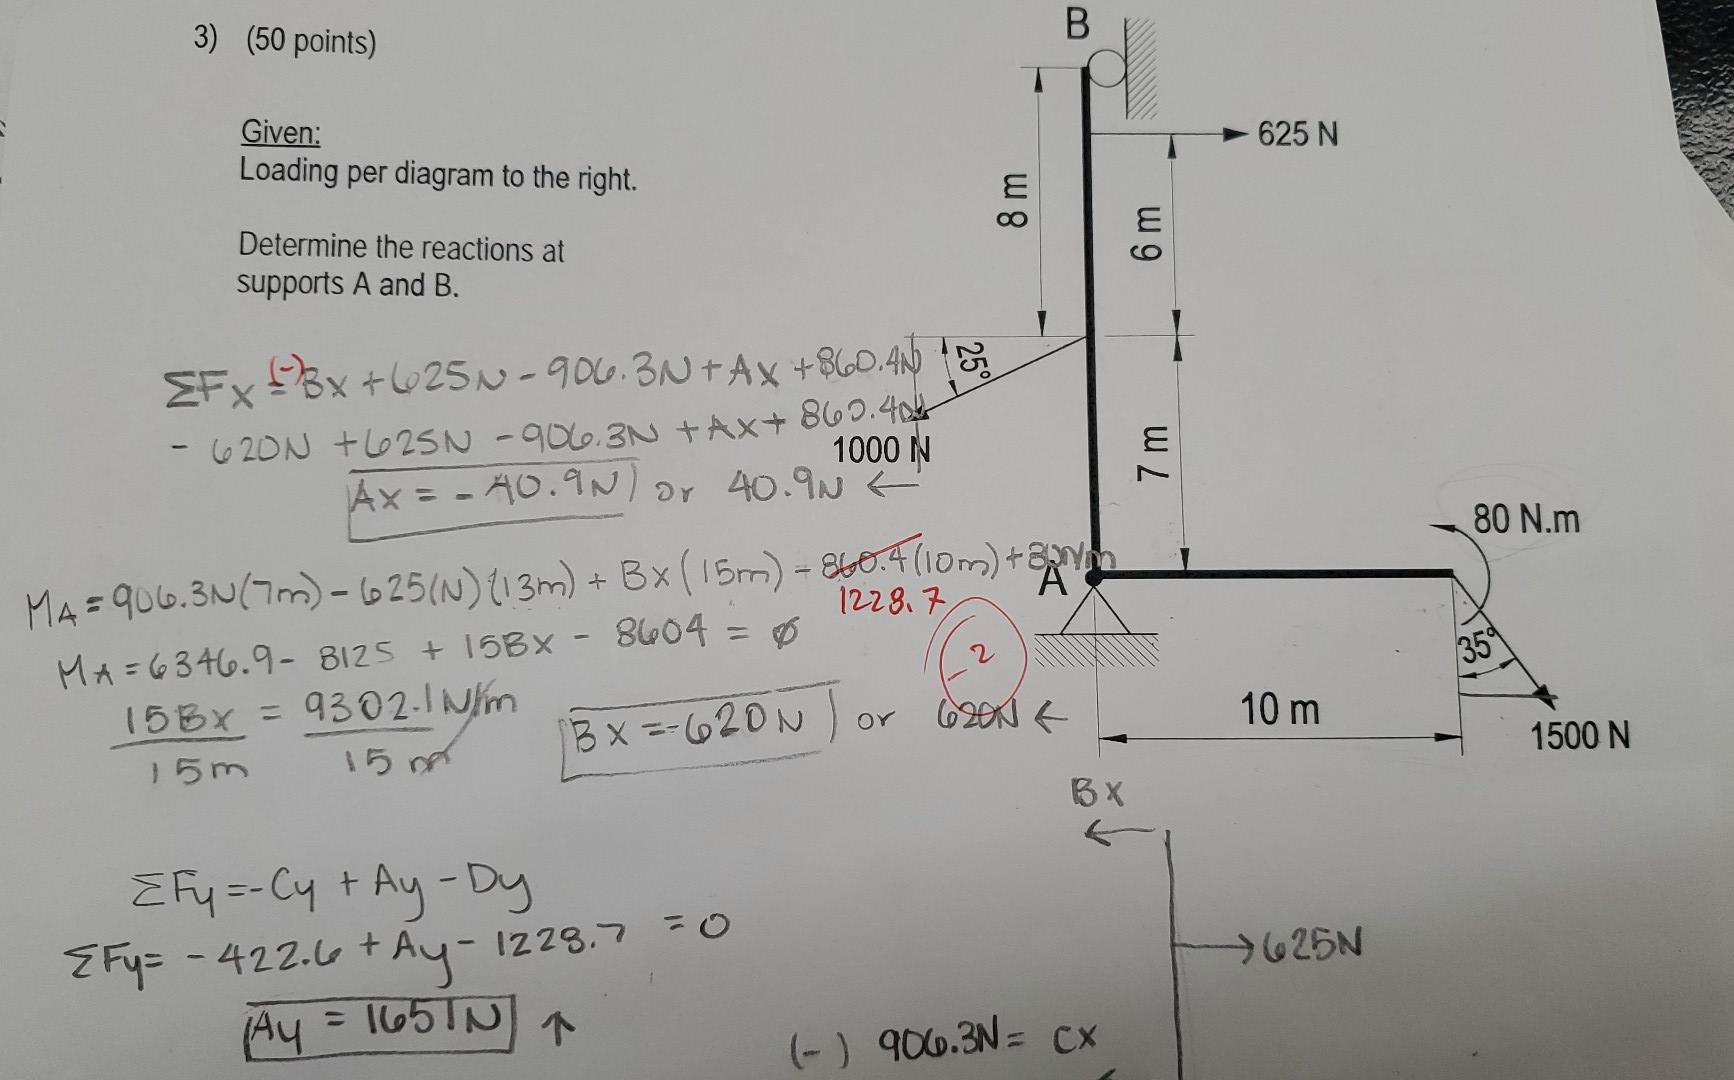 3) (50 points)
Given:
Loading per diagram to the right.
Determine the reactions at
supports A and B.
B
625 N
8 m
6 m
25°
1000 N
7 m
80 N.m
A
35°
10 m
1500 N
ΣFx = (-)Bx + 625N - 906.3N + Ax + 860.4N
- 620N + 625N - 906.3N + Ax + 860.4N
Ax = - 40.9N or 40.9N ←
MA = 906.3N(7m) - 625(N)(13m) + Bx(15m) - 860.4(10m) +
1228.7
MA = 6346.9 - 8125 + 15Bx - 8604 = ø
-2
15Bx = 9302.1 N/m
15m 15m
Bx = -620N or 620N ←
ΣFy = -Cy + Ay - Dy
ΣFy = -422.6 + Ay - 1228.7 = 0
Ay = 1651N ↑
Bx
←
→ 625N
(-) 906.3N = Cx